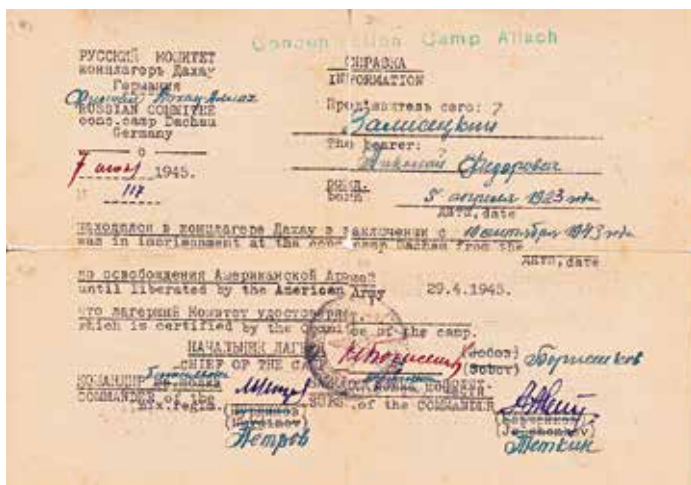 Concentration Camp Allach
РУССКИЙ КОМИТЕТ
концлагерь Дахау
Германия
Филиал Дахау-Аллах
RUSSIAN COMMITEE
conc.camp Dachau
Germany
7 1945.
117
СПРАВКА
INFORMATION
Пред'явитель сего:
Залисецкий
The bearer:
Николай Федорович
born 5 апреля 1923 года
дата, date
находился в концлагере Дахау в заключении с 10 сентября 1943 года
was in imprisonment at the conc.camp Dachau from the
дата, date
до освобождения Американской Армией
until liberated by the American Army 29.4.1945.
что лагерный Комитет удостоверяет.
which is certified by the Comitee of the camp.
НАЧАЛЬНИК ЛАГЕРЯ
CHIEF OF THE CAMP
Борисенков
КОМАНДИР
COMMANDER of the
mix.regim.
SUBS. of the COMMANDER
Петров
Теткин